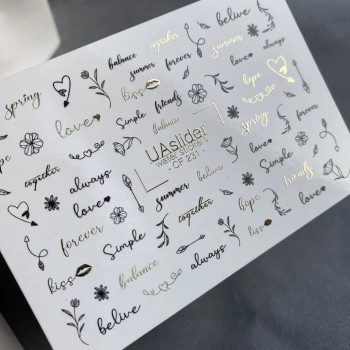 belive
together
balance
summer
forever
love
always
Summer
spring
kiss
hope
love
Simple
friends
forever
balance
spring
UAslider
water stickers
· CF 231 ·
love
together
always
Simple
love
summer
belive
forever
together
hope
friends
Simple
love
kiss
balance
always
kiss
belive